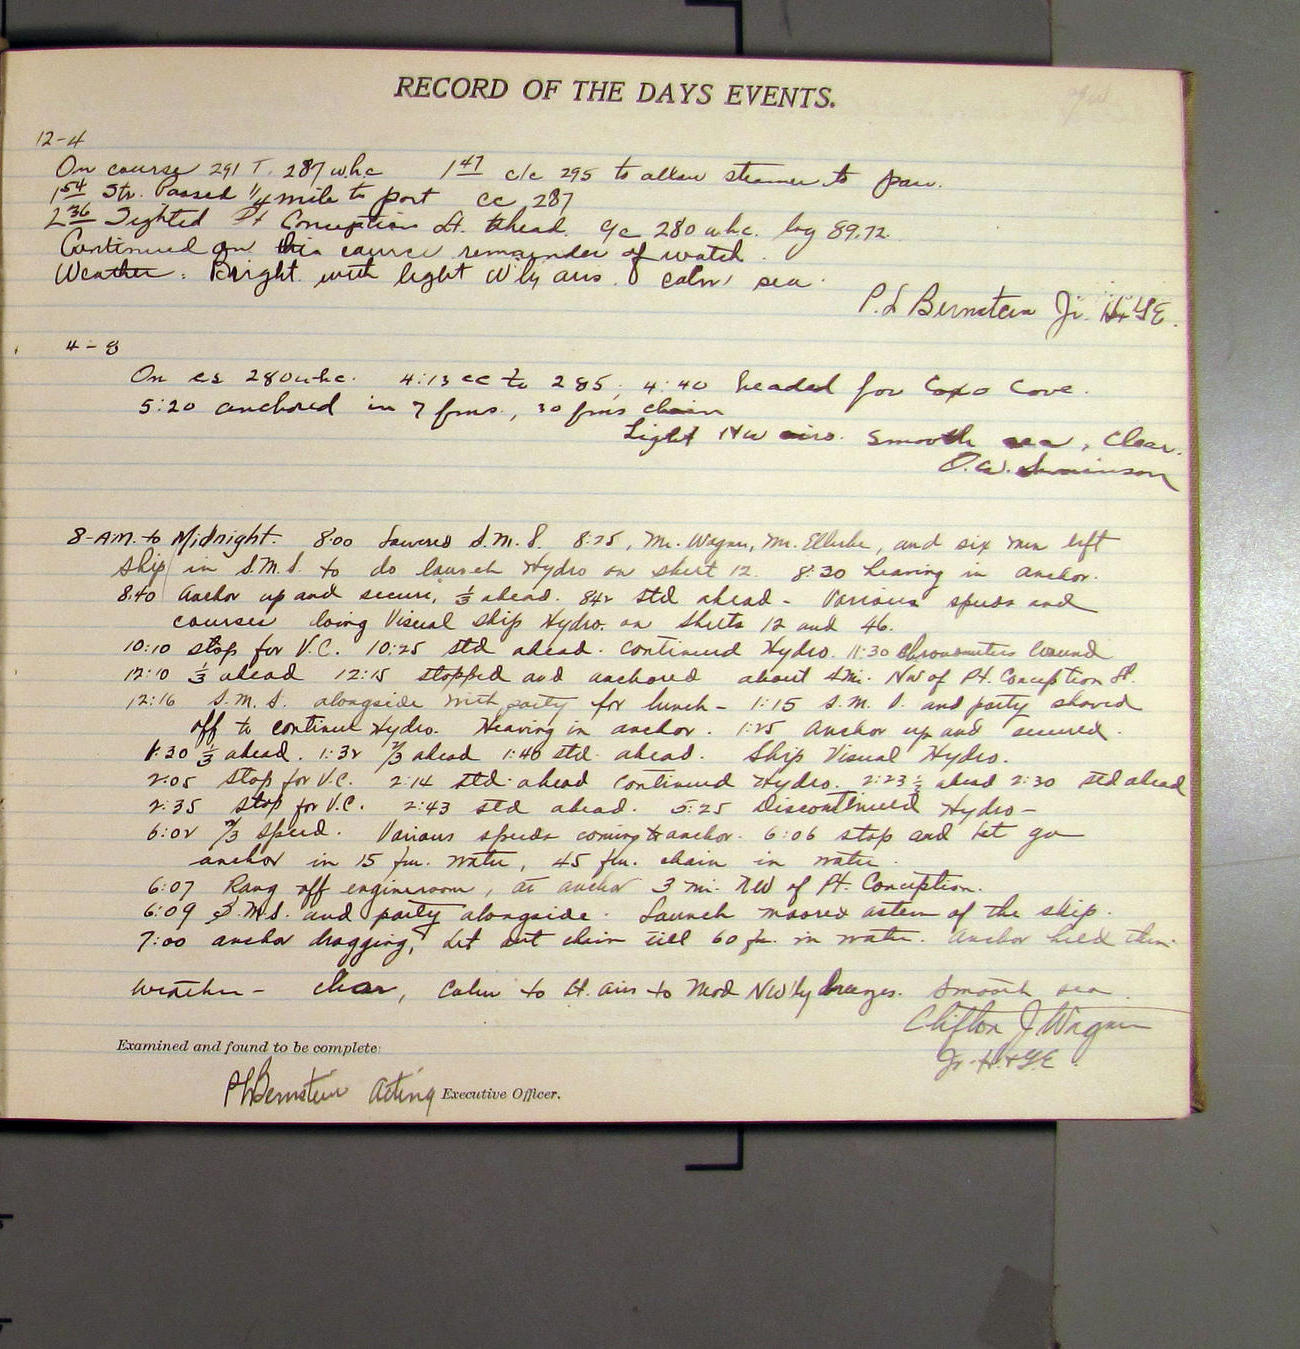 RECORD OF THE DAYS EVENTS.
12-4
On course 291 T. 287 whc 1 47 c/c 295 to allow steamer to pass.
1 54 Str. Passed 1/4 mile to port cc 287
2 36 Sighted Pt Conception Lt. ahead. c/c 280 whc. log 89.72
Continued on this course remainder of watch.
Weather: Bright with light W'ly airs. calm sea.
P. L Bernstein Jr. H & GE.
4-8
On cs 280 whc. 4:13 cc to 285, 4:40 headed for Coxo Cove.
5:20 anchored in 7 fms., 30 fms chain
Light NW airs. Smooth sea, Clear.
O. W. Swainson
8-AM. to Midnight. 8:00 Lowered S.M.S. 8:25, Mr. Wagner, Mr. and six men left
ship in S.M.S. to do launch Hydro on sheet 12. 8:30 heaving in anchor.
8:40 Anchor up and secure, 1/3 ahead. 842 std ahead - Various speeds and
courses doing Visual ship Hydro. on sheets 12 and 46.
10:10 stop for V.C. 10:25 std ahead. continued Hydro. 11:30 chronometers wound
12:10 1/3 ahead 12:15 stopped and anchored about mi. NW of Pt. Conception Lt.
12:16 S.M.S. alongside with party for lunch - 1:15 S.M.S. and party shoved
off to continue Hydro. Heaving in anchor. 1:25 Anchor up and secured.
1:30 1/3 ahead. 1:32 2/3 ahead 1:40 std. ahead. Ship Visual Hydro.
2:05 stop for V.C. 2:14 std. ahead continued Hydro. 2:23 ahead 2:30 std ahead
2:35 stop for V.C. 2:43 std ahead. 5:25 Discontinued Hydro -
6:02 2/3 speed. Various speeds coming to anchor. 6:06 stop and let go
anchor in 15 fm. water, 45 fm. chain in water.
6:07 Rang off engineroom, at anchor 3 mi. NW of Pt. Conception.
6:09 S.M.S. and party alongside. Launch moored astern of the ship.
7:00 anchor dragging, let out chain till 60 fm. in water. Anchor held then.
Weather - clear, Calm to lt. airs to Mod NW'ly breezes. Smooth sea.
Clifton J Wagner
Jr. H. & GE.
Examined and found to be complete:
P L Bernstein Acting Executive Officer.